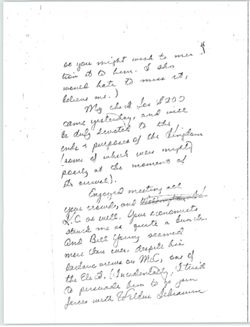 so you might wish to men-
tion it to him. I sho
would hate to miss it,
believe me.)
My check for $200
came yesterday, and will
be duly devoted to the
ends & purposes of the
(some of which were mighty
poorly at the moment of
its arrival).
Enjoyed meeting all
your crowd, and
L.C. as well. Your economists
struck me as quite a bunch.
And Bill Young seemed
more than ever, despite his
views on M.C., one of
the Elect. (Incidentally, I tried
to persuade him to join
forces with Wilbur Schramm